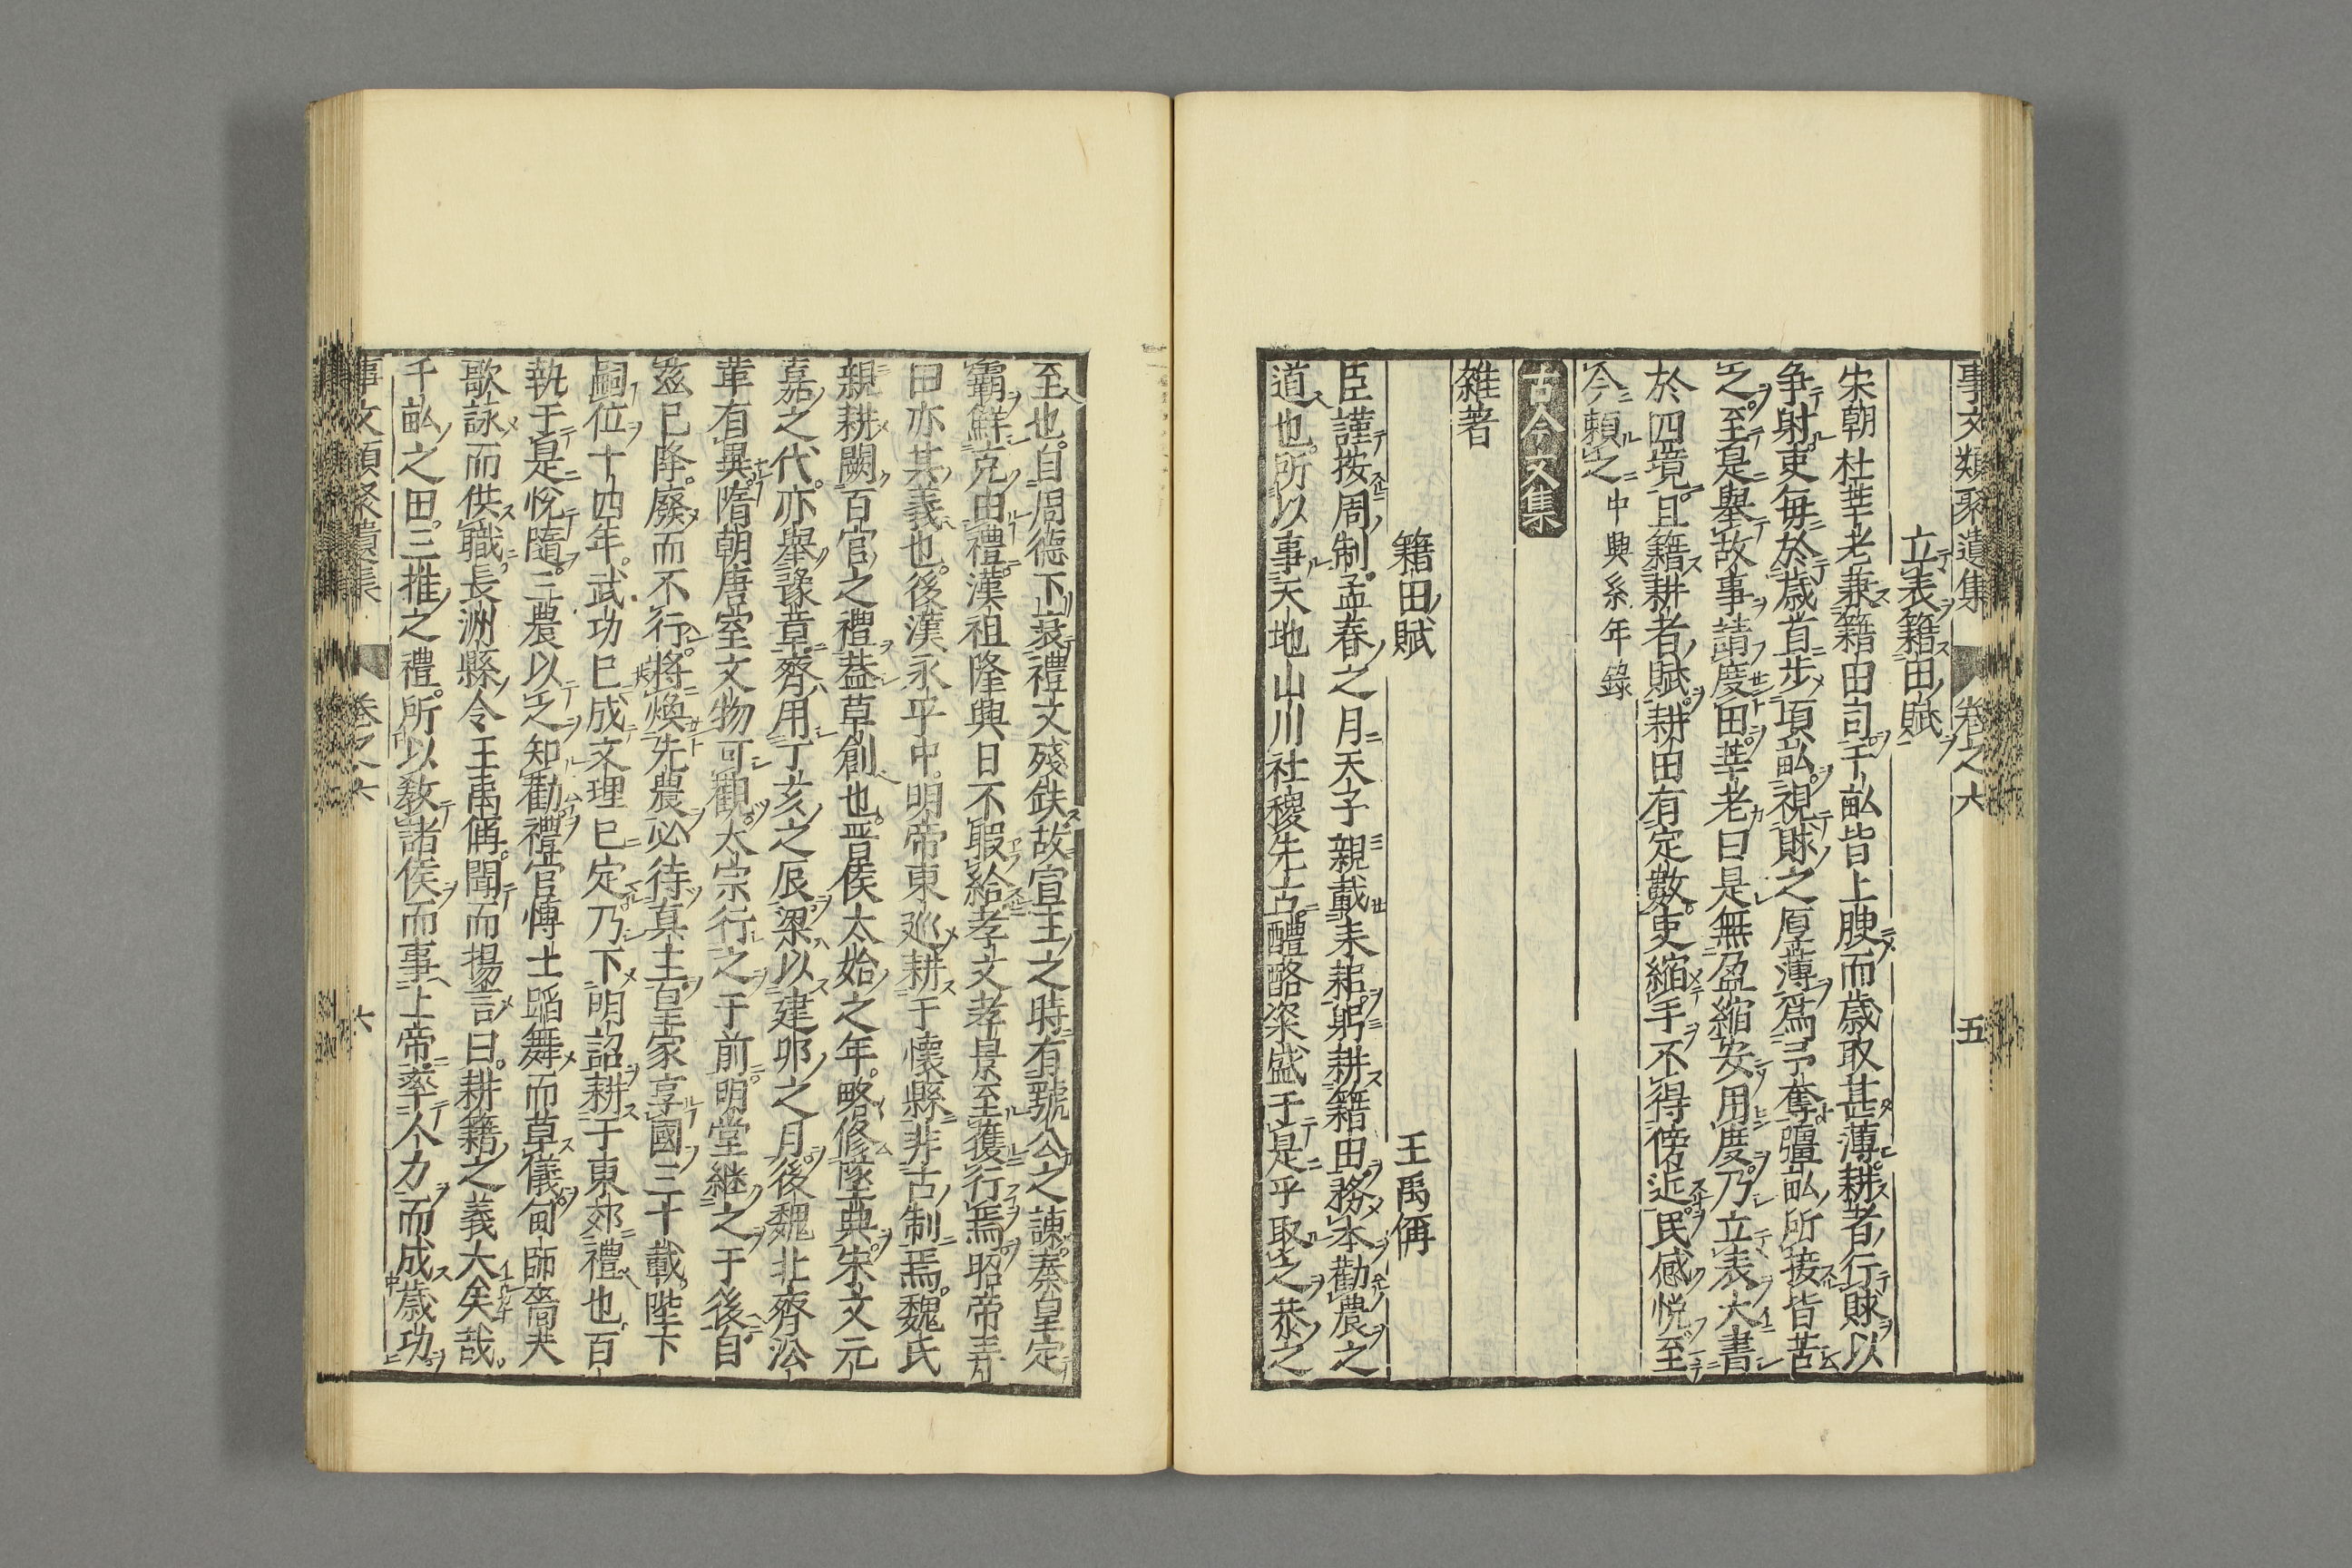 事文類聚遺集 卷之六 五
立表籍田賦
宋朝杜莘老兼籍田司千畝皆上腴而歲取甚薄耕者行賕以
争射吏每於歲首步項畝視賕之厚薄爲予奪疆畝所接皆苦
之至是舉故事請度田莘老曰是無盈縮安用度乃立表大書
於四境且籍耕者賦耕田有定數吏縮手不得傍近民感悦至
今賴之中興系年錄
古今文集
雜著
籍田賦 王禹偁
臣謹按周制孟春之月天子親載耒耜躬耕籍田務本勸農之
道也所以事天地山川社稷先古醴酪粢盛于是乎取之恭之
至也自周德下衰禮文殘鉄故宣王之時有虢公之諫秦皇定
霸鮮克由禮漢祖隆興日不暇給孝文孝景至獲行焉昭帝弄
田亦其義也後漢永平中明帝東巡耕于懷縣非古制焉魏氏
親耕闕百官之禮葢草創也晋侯太始之年略修墜典宋文元
嘉之代亦舉豫章齊用丁亥之辰梁以建卯之月後魏北齊沿
革有異隋朝唐室文物可觀太宗行之于前明堂継之于後自
玆已降廢而不行將煥先農必待真主皇家享國三十載陛下
嗣位十四年武功已成文理已定乃下明詔耕于東郊禮也百
執于是悅隨三農以之知勸禮官愽士蹈舞而草儀甸師嗇夫
歌詠而供職長洲縣令王禹偁聞而揚言曰耕籍之義大矣哉
千畝之田三推之禮所以敎諸侯而事上帝率人力而成歲功
事文類聚遺集 卷之六 六